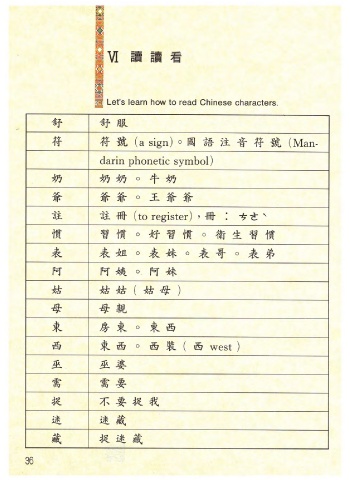 VI 讀讀看
Let's learn how to read Chinese characters.
舒 舒服
符 符號 (a sign)。國語注音符號 (Man-
darin phonetic symbol)
奶 奶奶。牛奶
爺 爺爺。王爺爺
註 註冊 (to register)，冊：ㄘㄜˋ
慣 習慣。好習慣。衛生習慣
表 表姐。表妹。表哥。表弟
阿 阿姨。阿妹
姑 姑姑(姑母)
母 母親
東 房東。東西
西 東西。西裝(西 west)
巫 巫婆
需 需要
捉 不要捉我
迷 迷藏
藏 捉迷藏
36